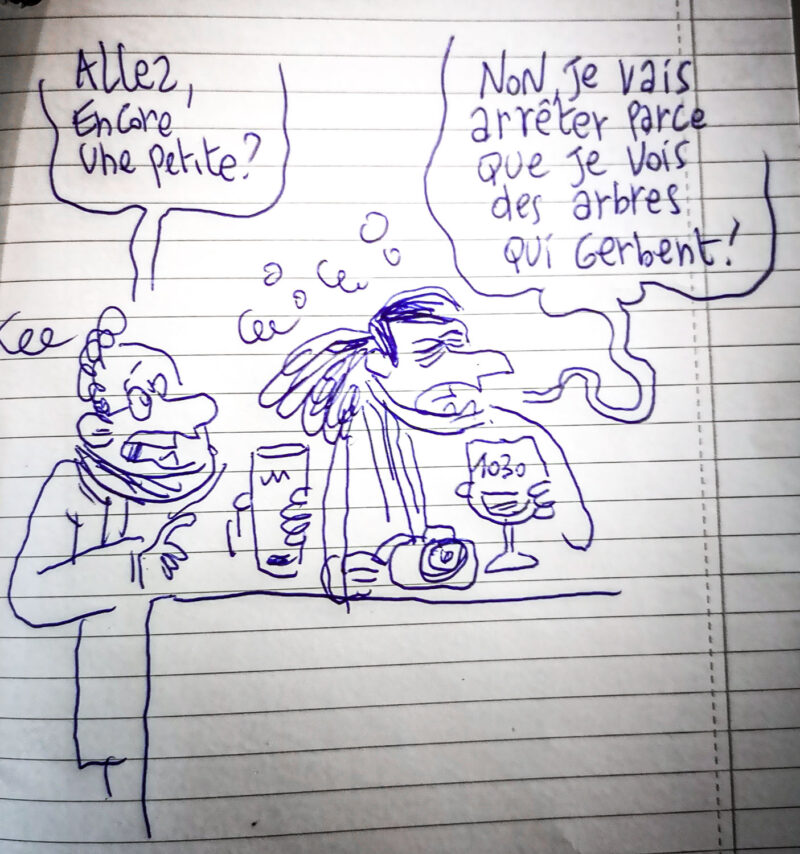 Allez,
Encore
Une petite?
Non, je vais
arrêter parce
que je vois
des arbres
qui gerbent!
1030